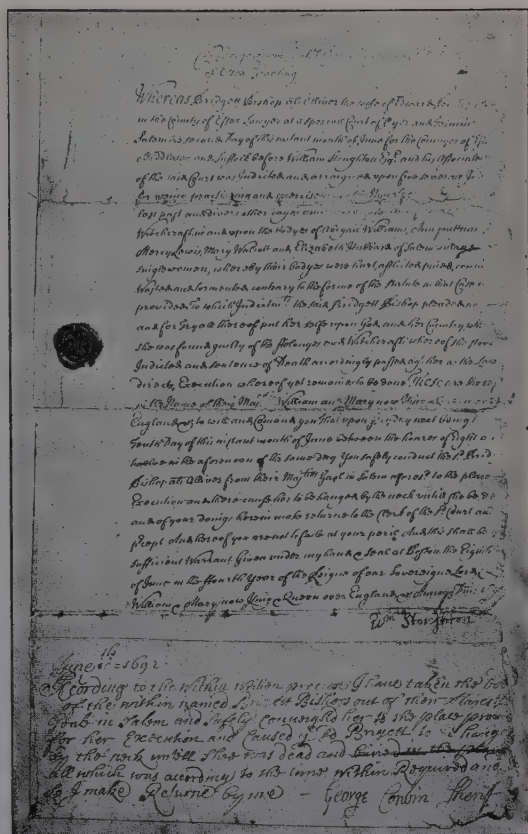 of Eten Greeting
Whereas Bridgett Bishop als Olliver the wife of Edward
in the County of Essex Sawyer at a speciall Court of Oyer and Terminer
Salem the second Day of this instant month of June for the Countyes of
Middlesex and Suffolk before William Stoughton Esqr and his Associates
of the said Court was Indicted and arraigned upon five severall
for useing practiseing and exerciseing
last past and divers other dayes and
Witchcraft in and upon the bodyes of Abigail Williams, Ann puttnam
Mercy Lewis, Mary Walcott and Elizabeth Hubbard of Salem village
singlewomen, whereby their bodyes were hurt, afflicted pined, consu
Wasted and tormented contrary to the forme of the Statute in that Case
provided To which Indictmts the said Bridgett Bishop pleaded no
and for Tryall thereof put her selfe upon God and her Country, wh
she was found guilty of the ffelonyes and Witchcrafts whereof she stood
Indicted and sentence of Death accordingly passed agt her as the Law
directs, Execution whereof yet remaines to be done These are there
in the Name of their Majties William and Mary now King &
England &c to will and Comand you That upon fryday next being
tenth Day of this instant month of June between the houres of Eight &
twelve in the aforenoon of the same day You safely conduct the sd Brid
Bishop als Olliver from their Majties Gaol in Salem aforesd to the place
Execution and there cause her to be hanged by the neck untill she be de
and of your doings herein make returne to the Clerk of the sd Court an
pcept And hereof you are not to faile at your peril And this shall be
Sufficient Warrant Given under my hand & Seal at Boston the Eighth
of June in the ffourth Year of the Reigne of our Sovereigne Lords
William & Mary now King & Queen over England &c Annoq
Wm Stoughton
June 10th = 1692
According to the Within Written precept I have taken the bo
of the within named Bridgett Bishop out of their Majests
Goale in Salem and Safely Conveighd her to the place
for her Execution and Caused ye sd Brigett to be hang
by the neck untill Shee was dead and buried in the place
all which was according to the time within Required and
So I make Returne by me -
George Corwin Sheriff